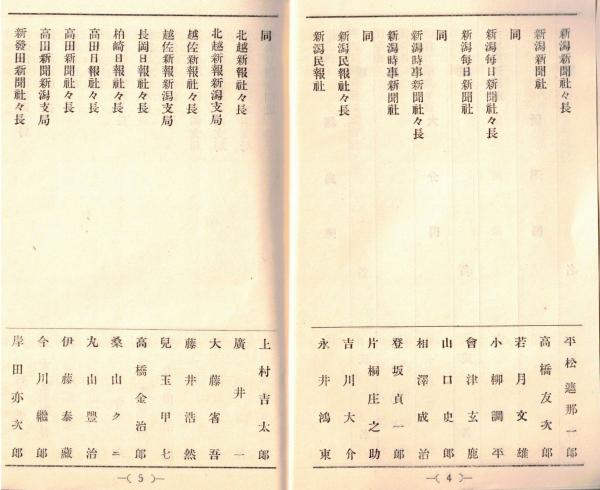 新潟新聞社々長 平松遮那一郎
新潟新聞社 高橋友次郎
同 若月文雄
新潟毎日新聞社々長 小柳調平
新潟毎日新聞社 會津玄鹿
同 山口史郎
新潟時事新聞社々長 相澤成治
新潟時事新聞社 登坂貞一郎
同 片桐庄之助
新潟民報社々長 吉川大介
新潟民報社 永井鴻東
—( 4 )—
同 上村吉太郎
北越新報社々長 廣井一
北越新報新潟支局 大藤省吾
越佐新報社々長 藤井浩然
越佐新報新潟支局 兒玉甲七
長岡日報社々長 高橋金治郎
柏崎日報社々長 桑山クニ
高田日報社々長 丸山豐治
高田新聞社々長 伊藤泰藏
高田新聞新潟支局 今川繼郎
新發田新聞社々長 岸田亦次郎
—( 5 )—